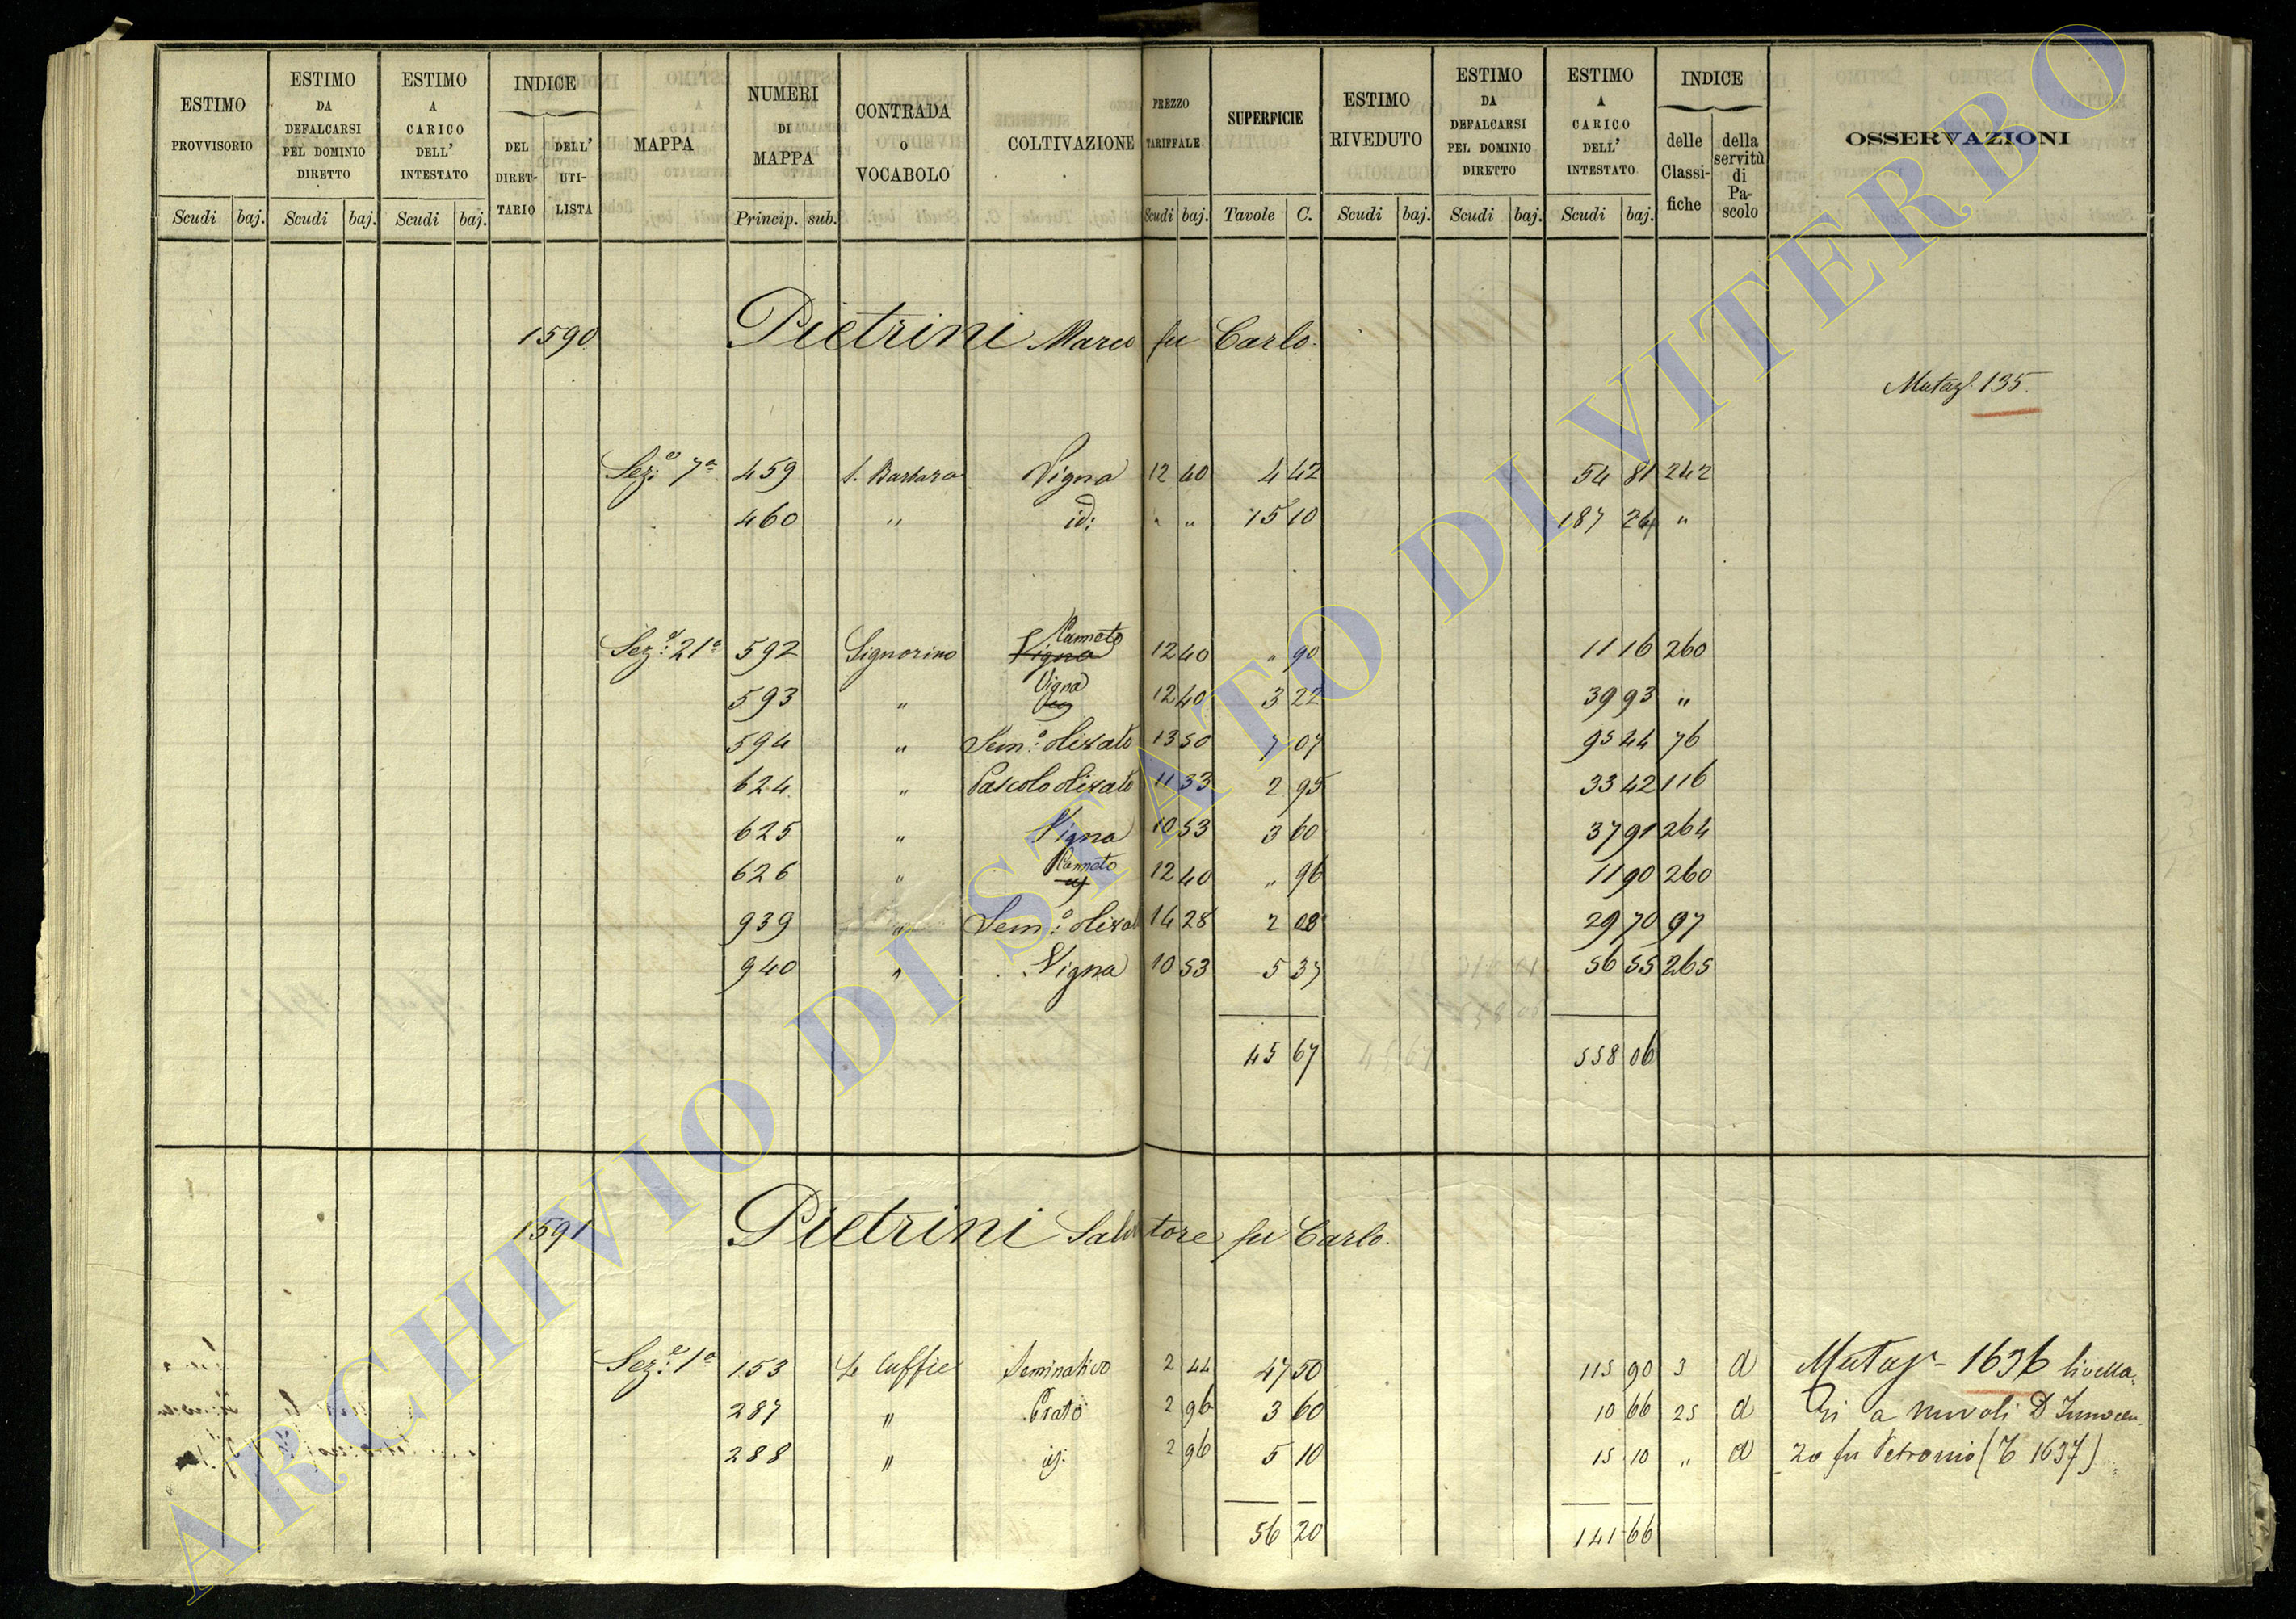 ESTIMO PROVVISORIO Scudi baj. ESTIMO DA DEFALCARSI PEL DOMINIO DIRETTO Scudi baj. ESTIMO A CARICO DELL' INTESTATO Scudi baj. INDICE DEL DIRET-TARIO DELL' UTI-LISTA MAPPA NUMERI DI MAPPA Princip. sub. CONTRADA O VOCABOLO COLTIVAZIONE PREZZO TARIFFALE. Scudi baj. SUPERFICIE Tavole C. ESTIMO RIVEDUTO Scudi baj. ESTIMO DA DEFALCARSI PEL DOMINIO DIRETTO Scudi baj. ESTIMO A CARICO DELL' INTESTATO Scudi baj. INDICE delle Classi-fiche della servitù di Pa-scolo OSSERVAZIONI
1590 Pietrini Marco fu Carlo.
Mutaz. 135.
Sez.e 7a 459 S. Barbara Vigna 12 40 4 42 54 81 242
460 " id: " " 15 10 187 24 "
Canneto
Sez.e 21a 592 Signorino Vigna 12 40 " 90 11 16 260
593 " Vigna 12 40 3 22 39 93 "
594 " Sem.o olivato 13 50 7 07 95 44 76
624 " Pascolo olivato 11 33 2 95 33 42 116
625 " Vigna 10 53 3 60 37 91 264
626 " Canneto 12 40 " 96 11 90 260
939 " Sem.o olivato 14 28 2 08 29 70 97
940 " Vigna 10 53 5 37 56 55 265
45 67 558 06
1591 Pietrini Salvatore fu Carlo.
Sez.e 1a 153 Le Cuffie Seminativo 2 44 47 50 115 90 3 d Mutaz 1636 livella-
287 " Prato 2 96 3 60 10 66 25 d ri a Nuvoli D Innocen-
288 " id. 2 96 5 10 15 10 " d zo fu Petronio (1637)
56 20 141 66
ARCHIVIO DI STATO DI VITERBO